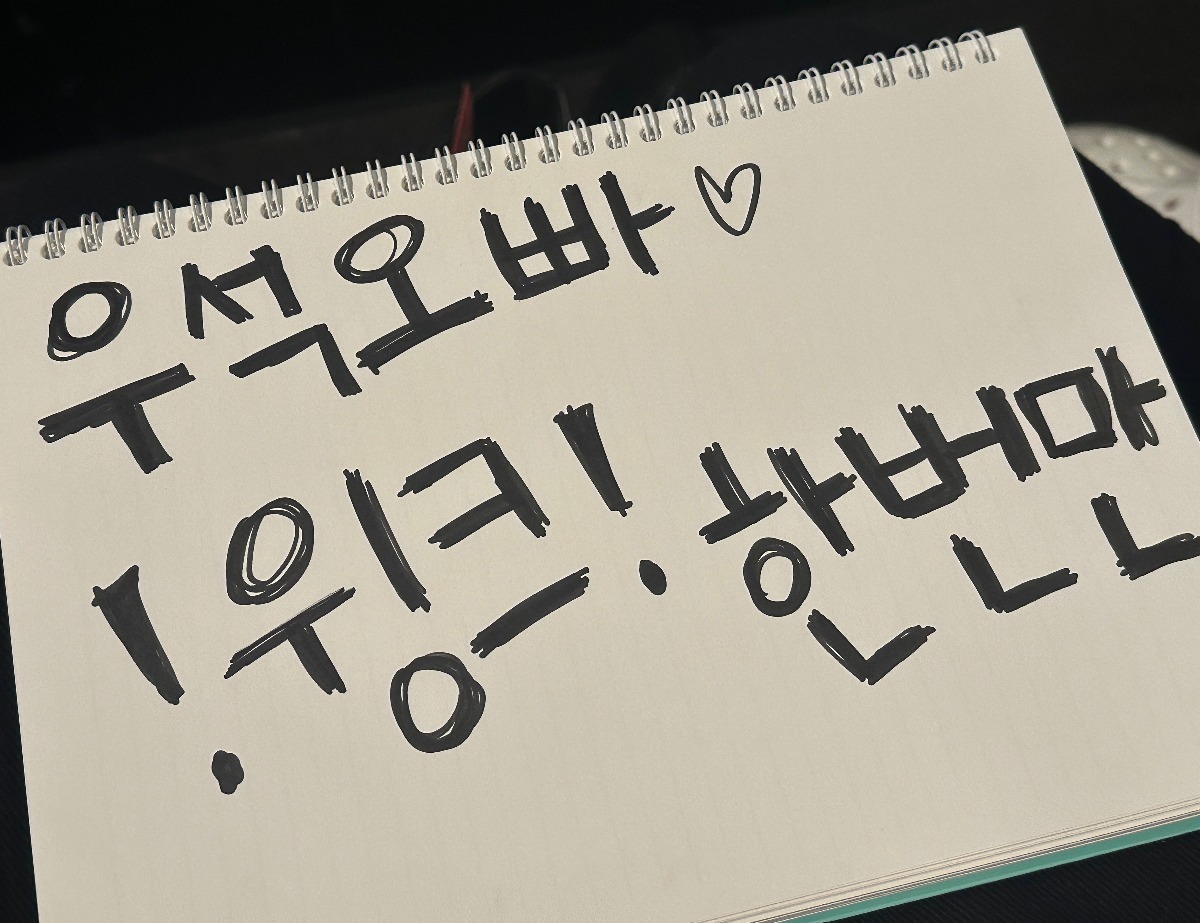 우석오빠♡
!윙크! 한번만